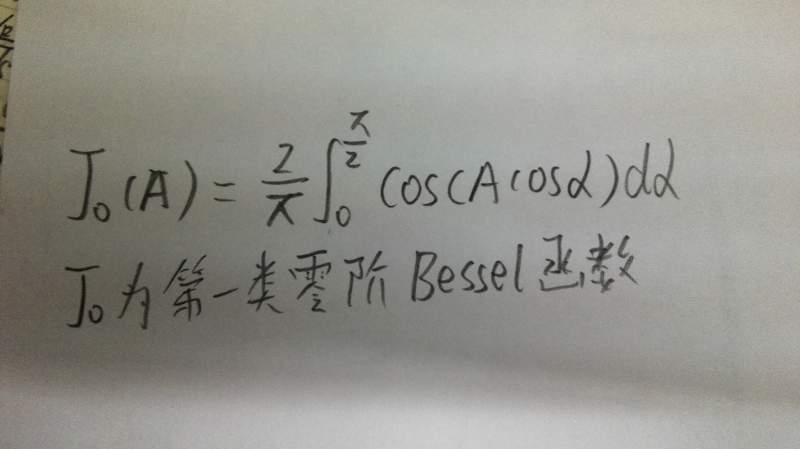 J₀(A) = 2/π ∫₀^(π/2) cos(A cosα)dα
J₀为第一类零阶Bessel函数